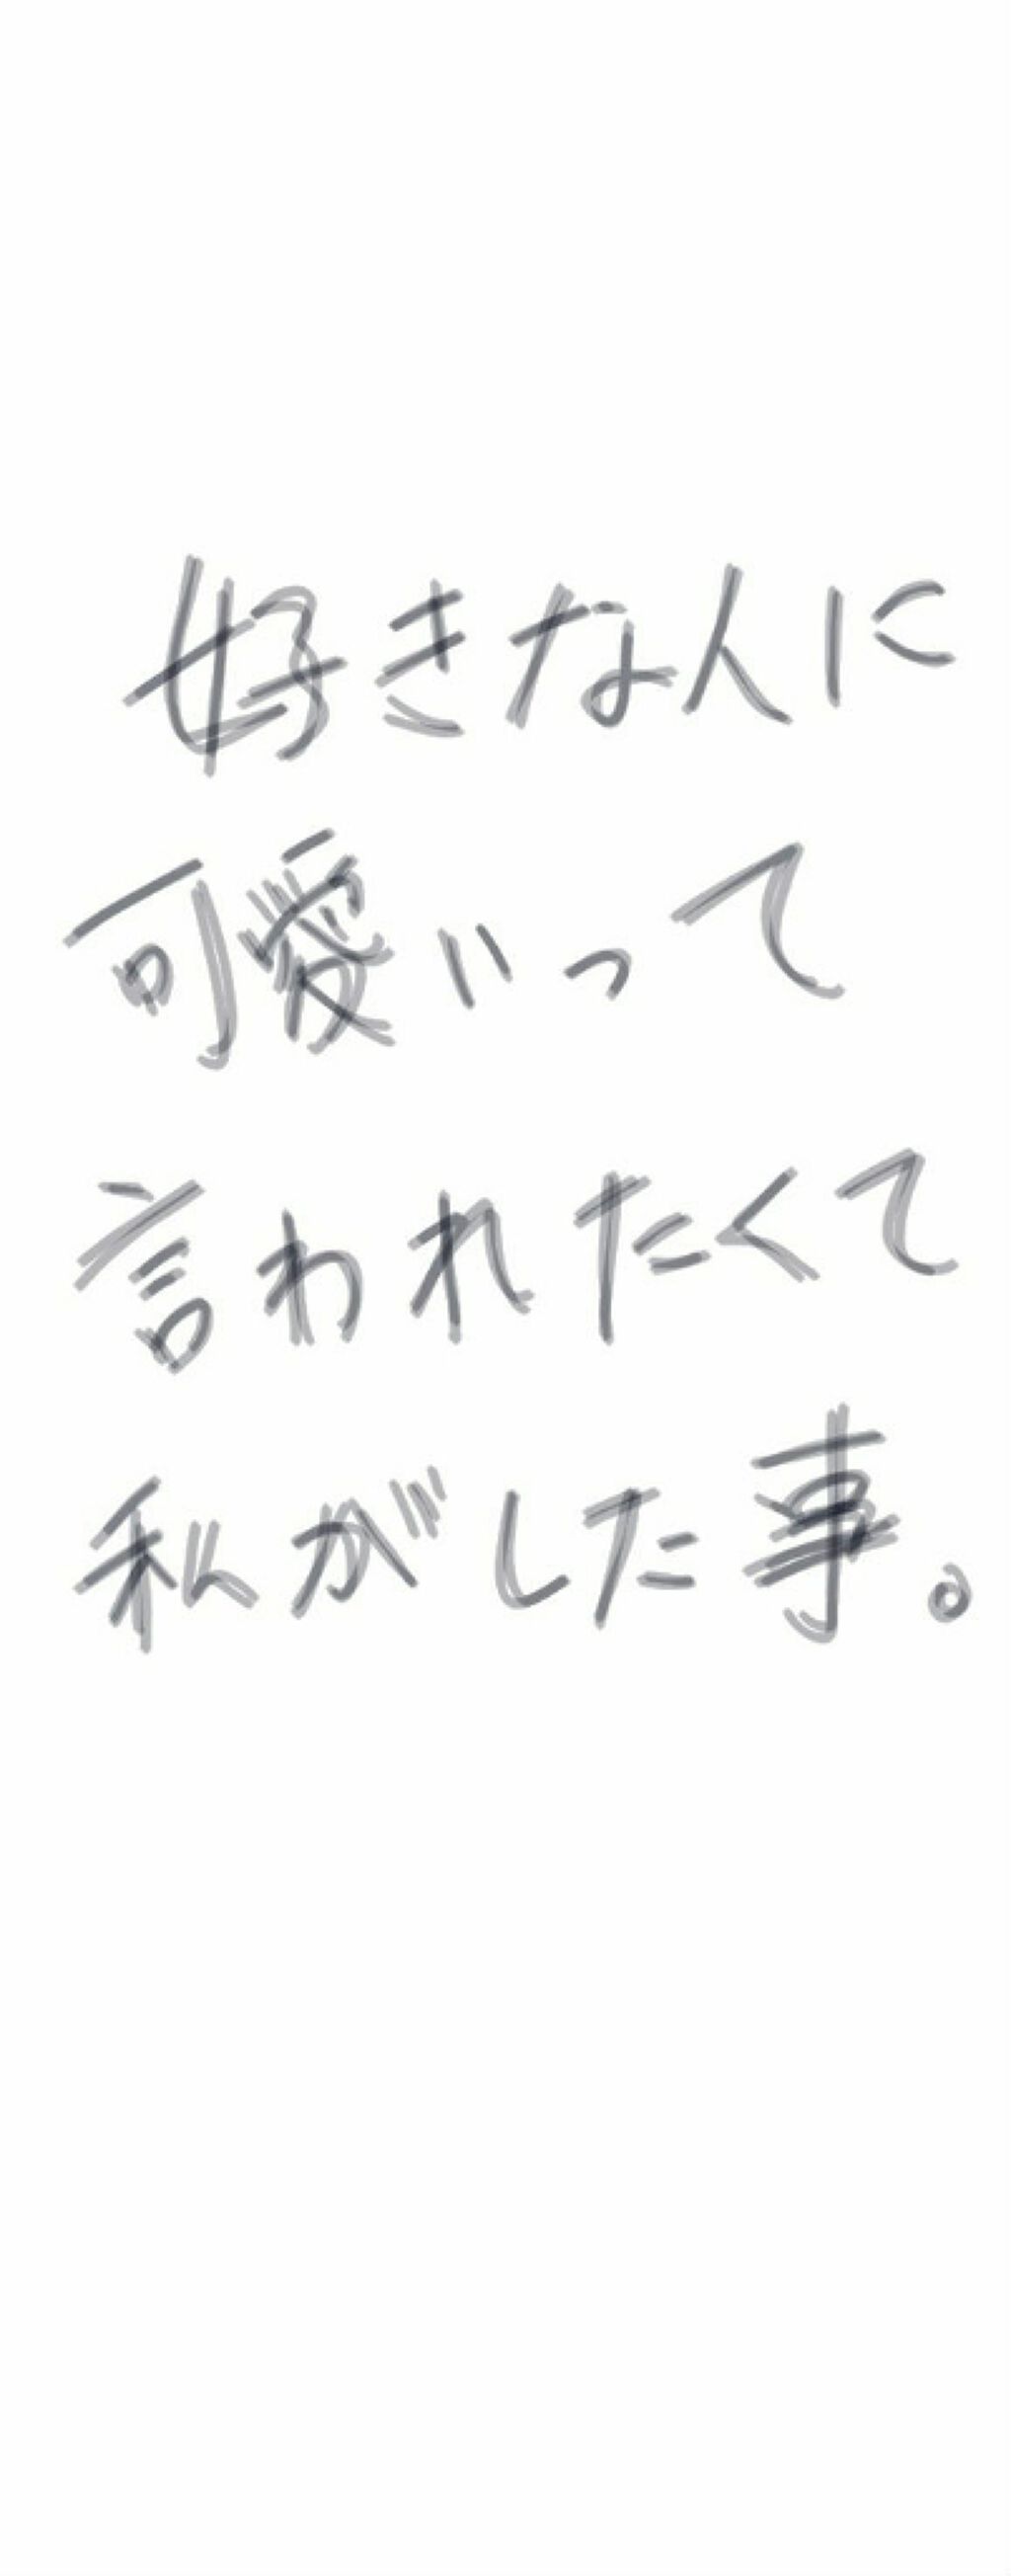 好きな人に
可愛いって
言われたくて
私がした事。